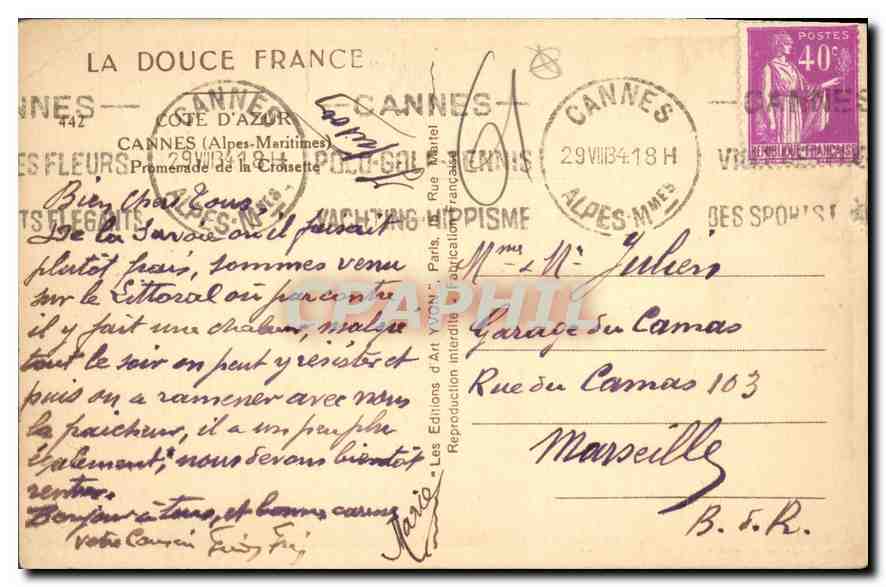 LA DOUCE FRANCE
442
COTE D'AZUR
CANNES (Alpes-Maritimes)
Promenade de la Croisette
CANNES
29 VIII 34 18 H
ALPES-MMES
NNES — CANNES —
ES FLEURS POLO-GOLF-TENNIS
TS ELEGANTS YACHTING-HIPPISME
CANNES
29 VIII 34 18 H
ALPES-MMES
DES SPORTS
POSTES
40c
REPUBLIQUE FRANCAISE
61
Bien chers Tous,
De la Savoie où il faisait
plutôt frais, sommes venu
sur le Littoral où par contre
il y fait une chaleur, malgré
tout le soir on peut y résister et
puis on a ramener avec nous
la fraicheur, il a un peu plu
également, nous devons bientôt
rentrer.
Bonjour à tous, et bonnes
votre Cousin
Marie
- Les Editions d'Art YVON - Paris, Rue Martel -
Reproduction interdite - Fabrication Française
Mme & Mr Julien
Garage du Camas
Rue du Camas 103
Marseille
B. d. R.
CPAPHIL